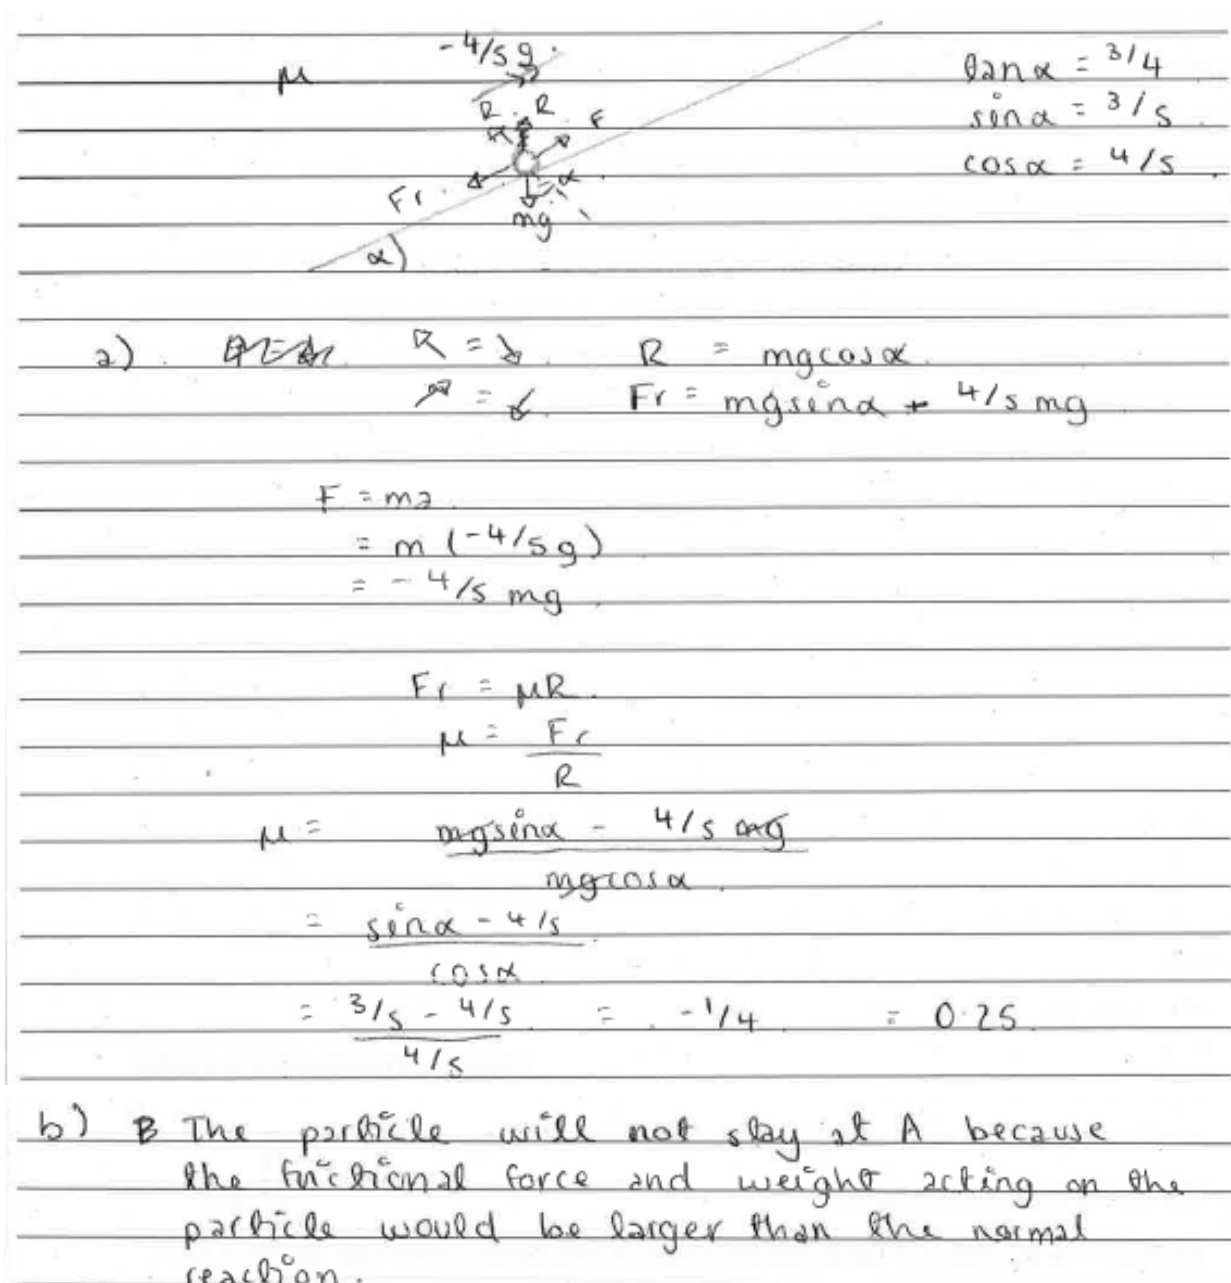 -4/5 g
μ
tan α = 3/4
sin α = 3/5
cos α = 4/5
R R F
Fr α
mg
α
a) ↖ = ↘ R = mgcosα
↗ = ↙ Fr = mgsinα - 4/5 mg
F = ma
= m (-4/5 g)
= -4/5 mg
Fr = μR
μ = Fr
R
μ = mgsinα - 4/5 mg
mgcosα
= sinα - 4/5
cosα
= 3/5 - 4/5 = -1/4 = 0.25
4/5
b) The particle will not stay at A because
the frictional force and weight acting on the
particle would be larger than the normal
reaction.